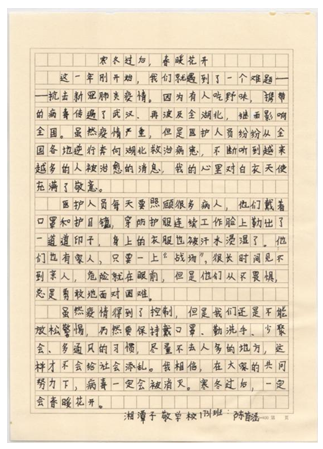 寒冬过后,春暖花开
这一年刚开始,我们就遇到了一个难题——
抗击新冠肺炎疫情。因为有人吃野味,携带
的病毒传遍了武汉,再波及全湖北,继而影响
全国。虽然疫情严重,但是医护人员纷纷从全
国各地逆行奔向湖北救治病患,不断听到越来
越多的人被治愈的消息,我的心里对白衣天使
充满了敬意。
医护人员每天要照顾很多病人,他们戴着
口罩和护目镜,穿防护服连续工作脸上勒出了
一道道印子,身上的衣服也被汗水浸湿了。他
们也有家人,只要一上"战场",很长时间见不
到亲人,危险就在眼前,但是他们从不畏惧,
总是勇敢地面对困难。
虽然疫情得到了控制,但是我们还是不能
放松警惕,仍然要保持戴口罩、勤洗手、少聚
会、多通风的习惯,尽量不去人多的地方,这
样才不会给社会添乱。我相信,在大家的共同
努力下,病毒一定会被消灭。寒冬过后,一定
会春暖花开。
湘潭子敬学校1731班:陈